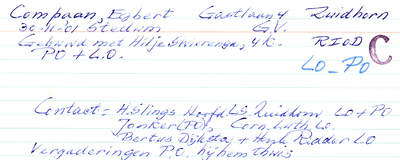 Compaan, Egbert Gastlaan 4 Zuidhorn
30-11-01 Stedum G.V. RIOD C
Gehuwd met Hilje Swierenga, 4 K.
PO + L.O. LO_PO
Contact = H. Slings Hoofd LS. Zuidhorn LO + PO
Jonker (PO), Corn. Luth LO.
Bertus Dijkstra + Henk Ridder LO
Vergaderingen P.O. bij hem thuis